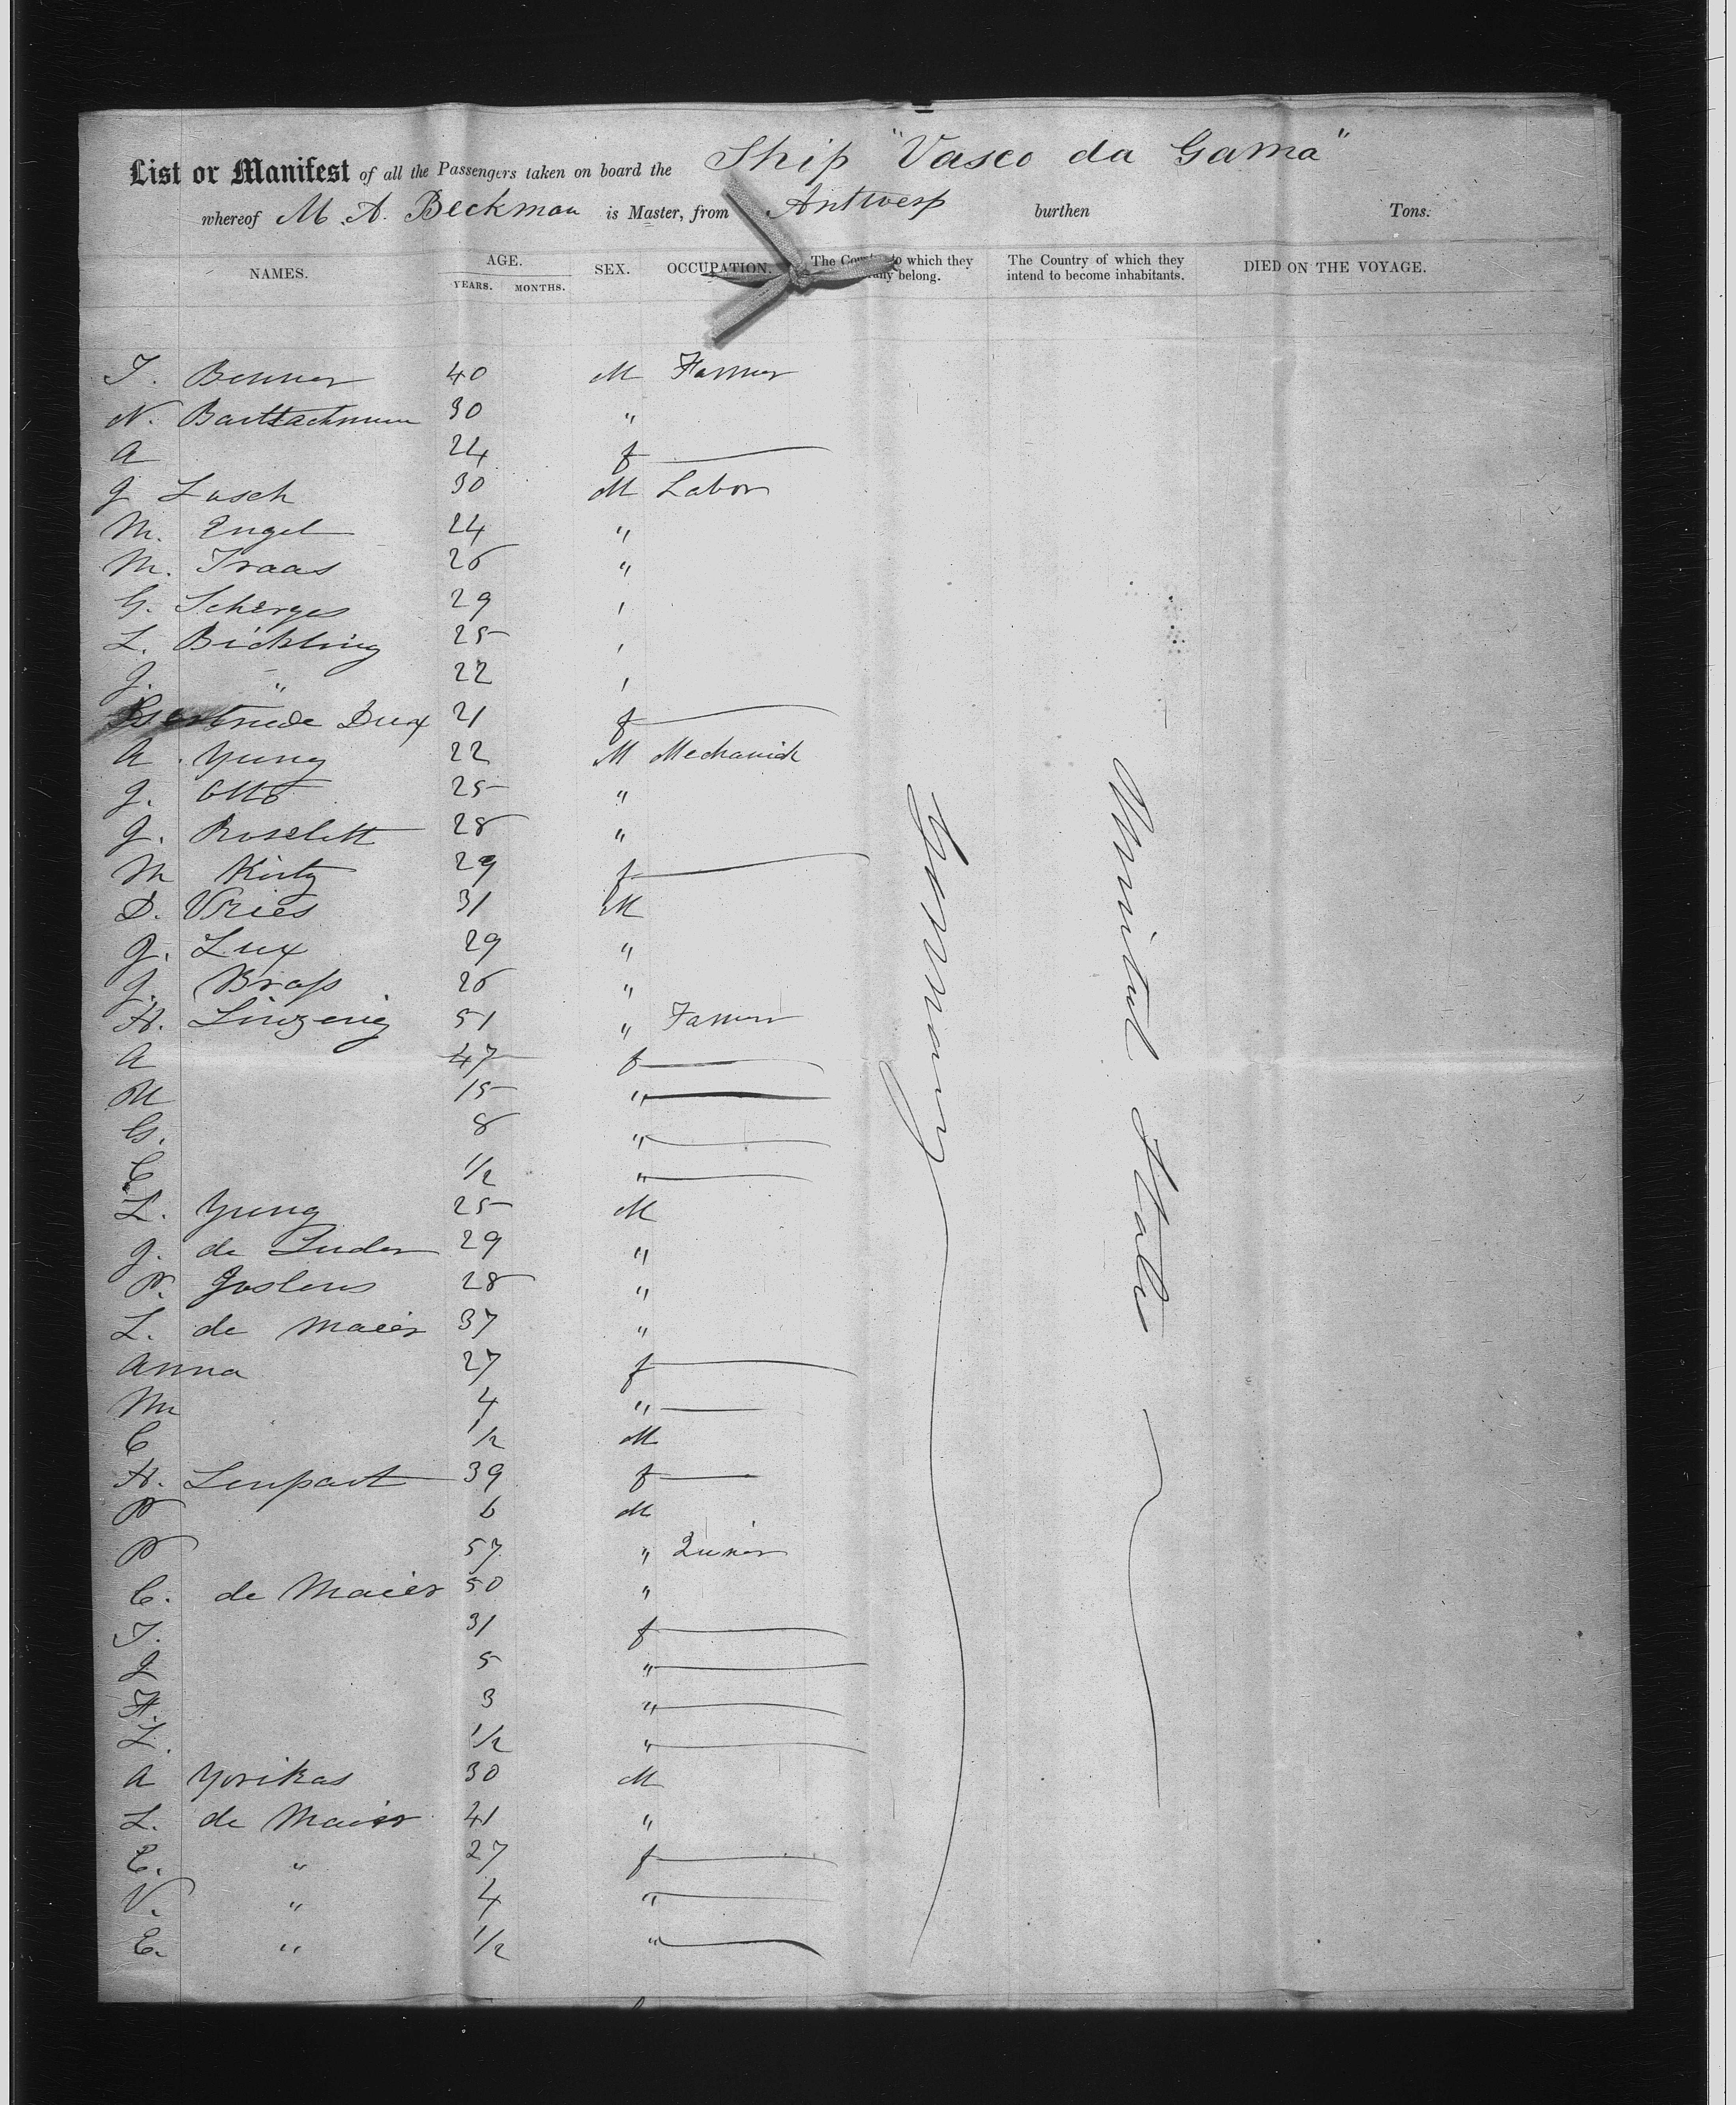 List or Manifest of all the Passengers taken on board the Ship "Vasco da Gama"
whereof M. A. Beckman is Master, from Antwerp burthen Tons.
NAMES. AGE. SEX. OCCUPATION. The to which they belong. The Country of which they intend to become inhabitants. DIED ON THE VOYAGE.
YEARS. MONTHS.
T. 40 M Farmer
N. 30 "
A 24 f
J Lasch 30 M Labor
M. Engel 24 "
M. Traas 26 "
G. Scherges 29 '
L. Bickling 25 '
J. " 22 '
Gertrude Dux 21 f
A. Yung 22 M Mechanick
J. Otto 25 "
J. Roselett 28 "
M Kirtz 29 f
D. Vries 31 M
J. Lux 29 "
J. Brass 26 "
H. 51 " Farmer
A 47 f
M 15 "
G. 8 "
C 1/2 "
L. Yung 25 M
J. de Luder 29 "
P. Goslens 28 "
L. de Maier 37 "
Anna 27 f
M 4 "
C 1/2 M
H. Lenpart 39 f
P 6 M
P 57 "
C. de Maier 50 "
T. 31 f
J 5 "
H. 3 "
L. 1/2 "
A Yorikas 30 M
L. de Maier 41 "
E. " 27 f
V. " 4 "
E. " 1/2 "
Germany
United States